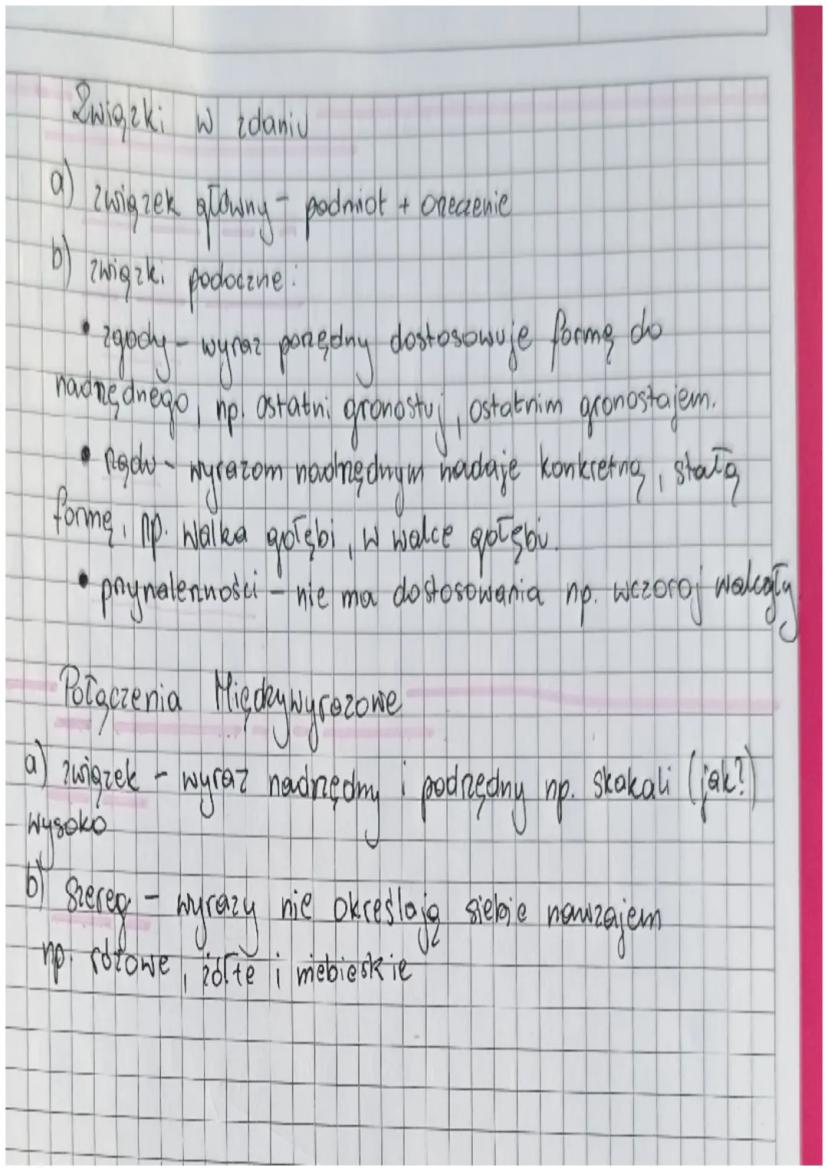 Związki w zdaniu
a) związek główny - podmiot + orzeczenie
b) związki podoczne:
• zgody - wyraz porzędny dostosowuje formę do
nadrzędnego, np. ostatni gronostaj, ostatnim gronostajem.
• rządu - wyrazom nadrzędnym nadaje konkretną, stałą
formę, np. walka gołębi, w walce gołębi.
• przynależności - nie ma dostosowania np. wczoraj walczyły
Połączenia Międzywyrazowe
a) związek - wyraz nadrzędny i podrzędny np. skakali (jak?)
wysoko
b) szereg - wyrazy nie określają siebie nawzajem
np. różowe, żółte i niebieskie